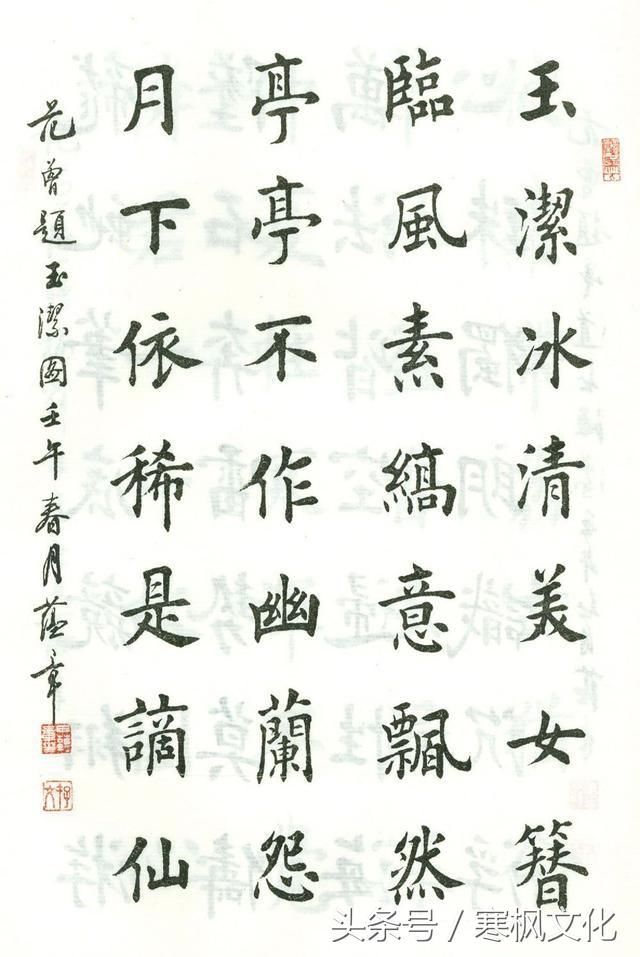 玉潔冰清美女簪
臨風素縞意飄然
亭亭不作幽蘭怨
月下依稀是謫仙
范曾題玉潔圖壬午春月蘊章
头条号 / 寒枫文化